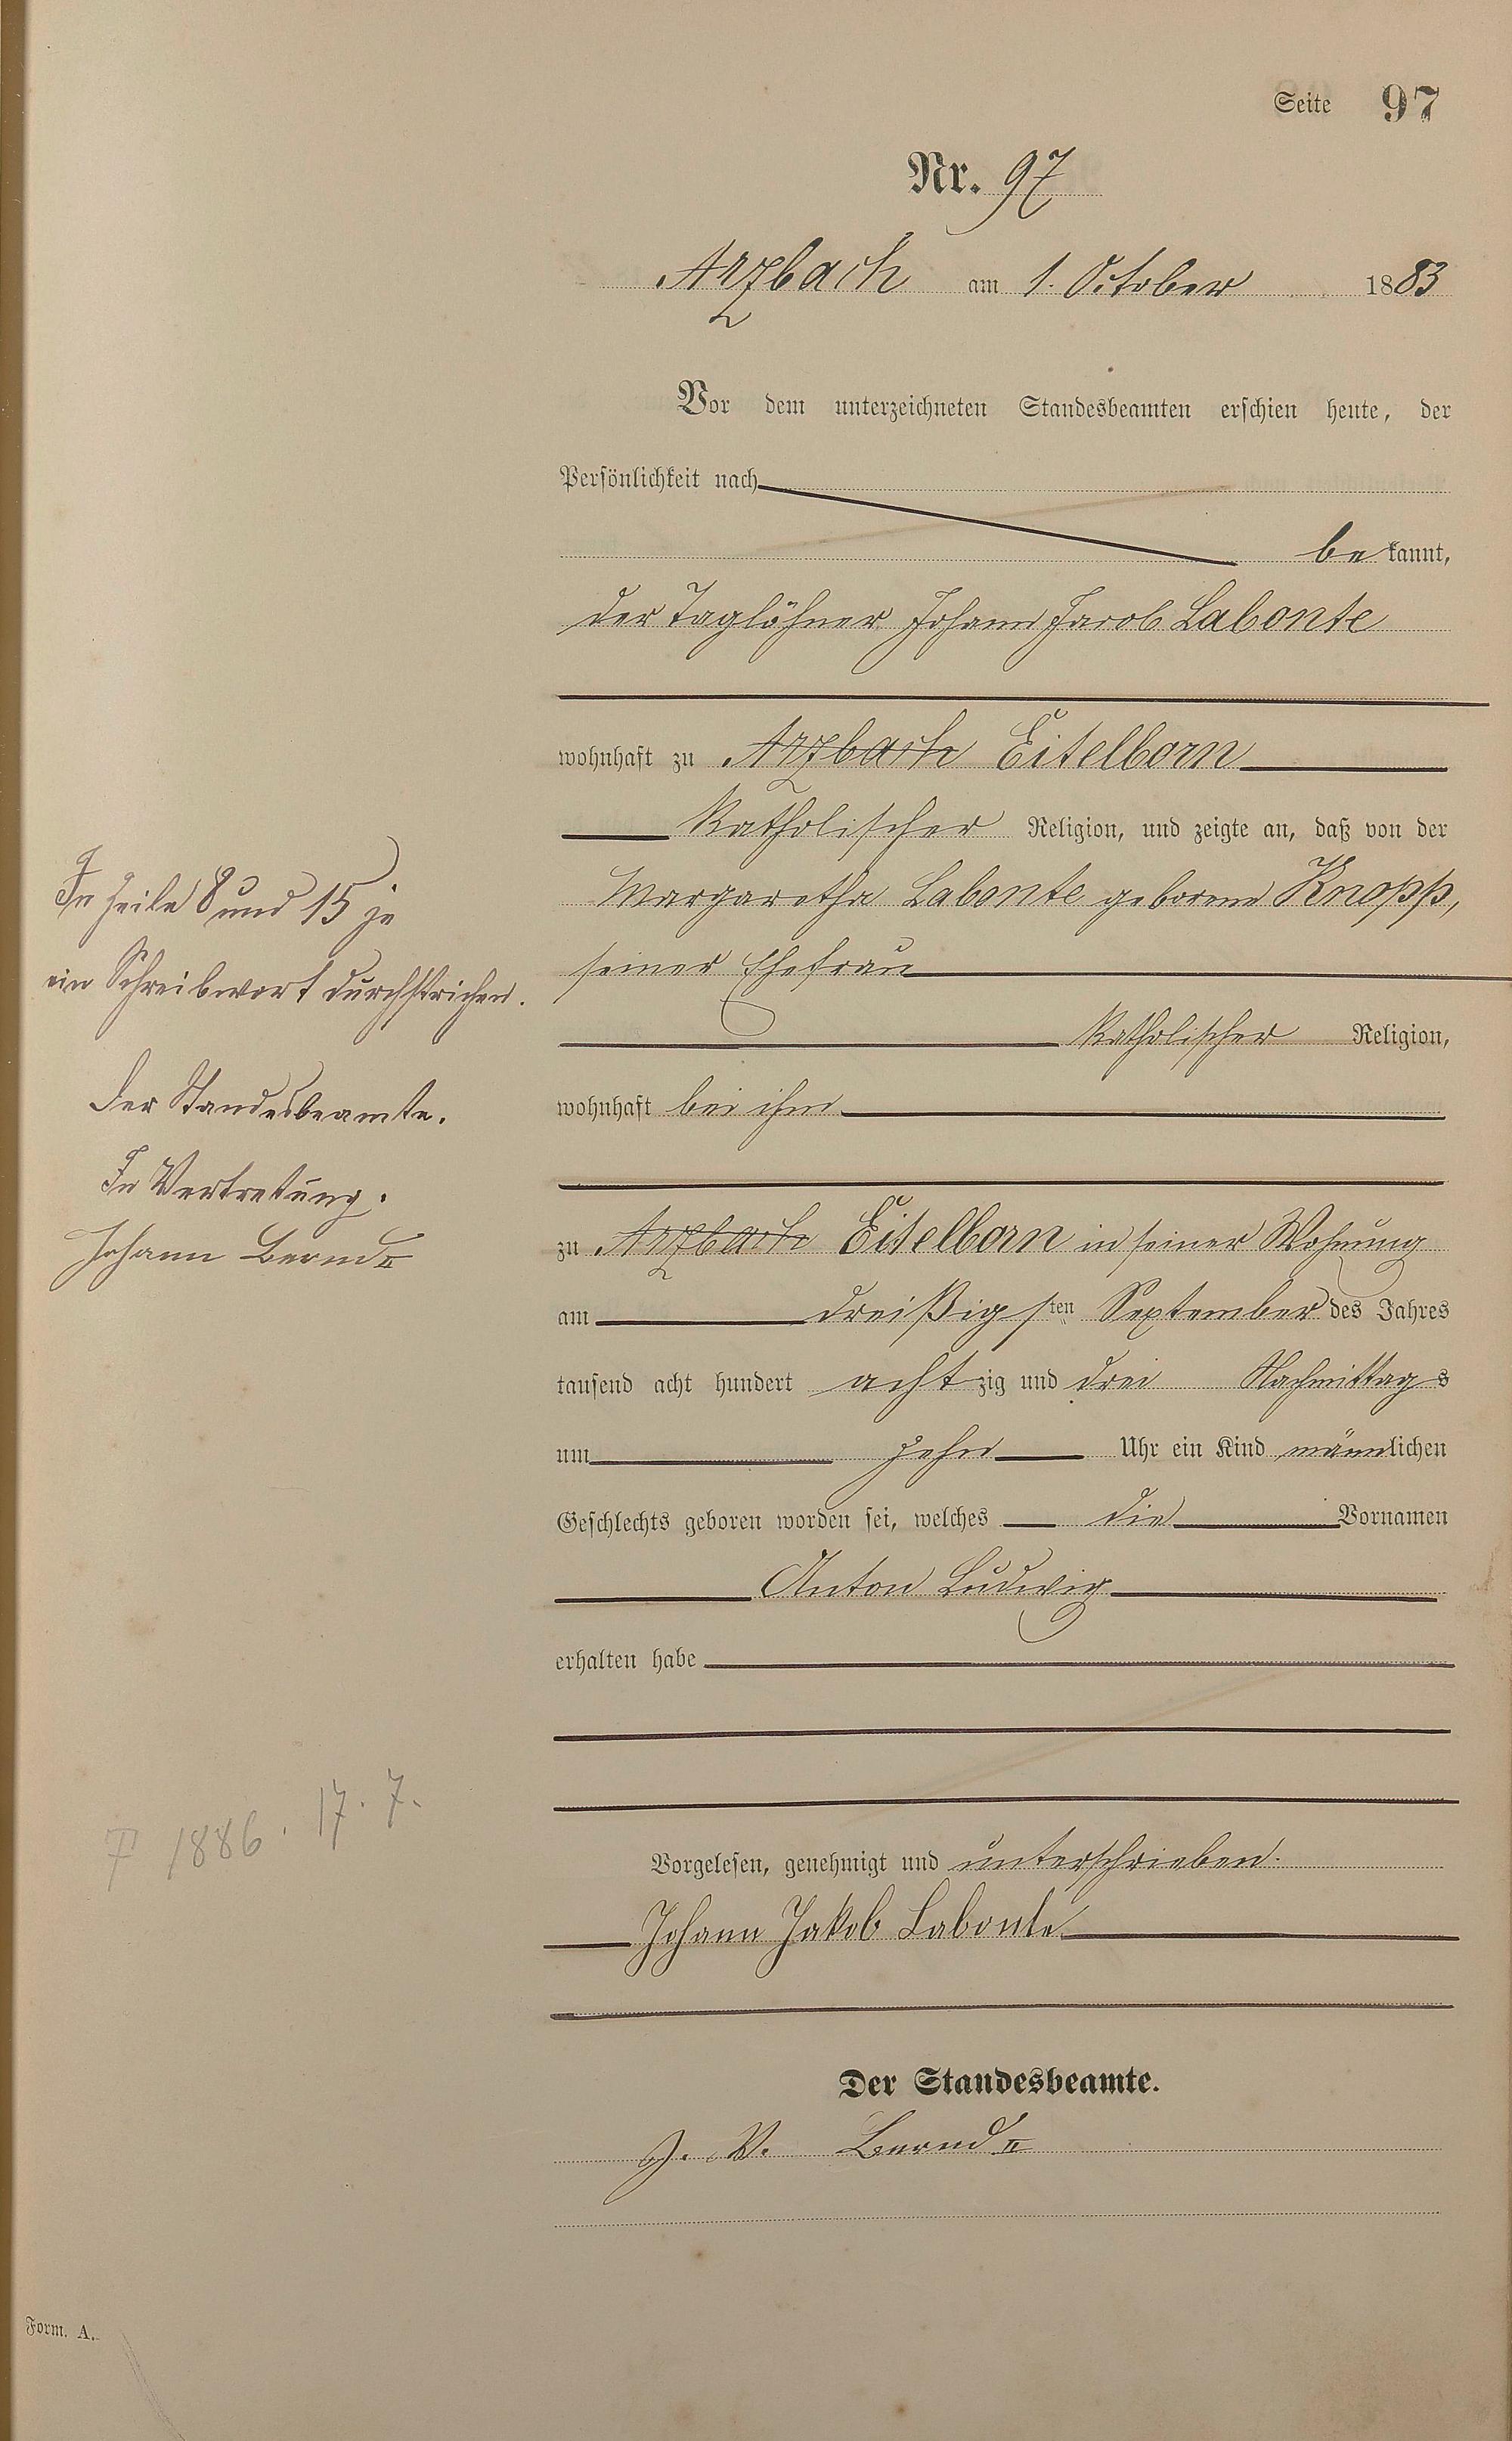 Seite 97
Nr. 97
Arzbach am 1. October 1883
Vor dem unterzeichneten Standesbeamten erschien heute, der
Persönlichkeit nach
bekannt,
der Taglöhner Johann Jacob Labonte
wohnhaft zu Arzbach Eitelborn
katholischer Religion, und zeigte an, daß von der
Margaretha Labonte geborene Knopp,
seiner Ehefrau
katholischer Religion,
wohnhaft bei ihm
zu Arzbach Eitelborn in seiner Wohnung
am dreißigsten September des Jahres
tausend acht hundert achtzig und drei Nachmittags
um zehn Uhr ein Kind männlichen
Geschlechts geboren worden sei, welches die Vornamen
Anton Ludwig
erhalten habe
Vorgelesen, genehmigt und unterschrieben.
Johann Jakob Labonte
Der Standesbeamte.
J. V. Bernd II
In Zeile 8 und 15 je
ein Schreibwort durchstrichen.
Der Standesbeamte.
In Vertretung.
Johann Bernd II
† 1886. 17. 7.
Form. A.